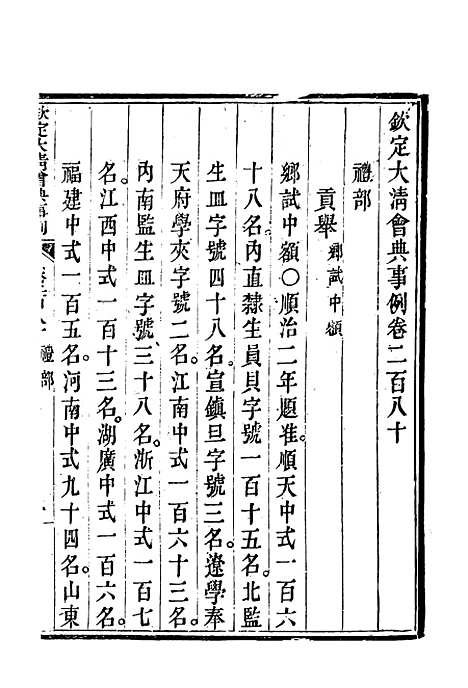 欽定大清會典事例卷二百八十
禮部
貢舉 鄉試中額
鄉試中額〇順治二年題准。順天中式一百六
十八名。內直隸生員貝字號一百十五名。北監
生皿字號四十八名。宣鎮旦字號三名。遼學奉
天府學夾字號二名。江南中式一百六十三名。
內南監生皿字號三十八名。浙江中式一百七
名。江西中式一百十三名。湖廣中式一百六名。
福建中式一百五名。河南中式九十四名。山東
欽定大清會典事例 禮部